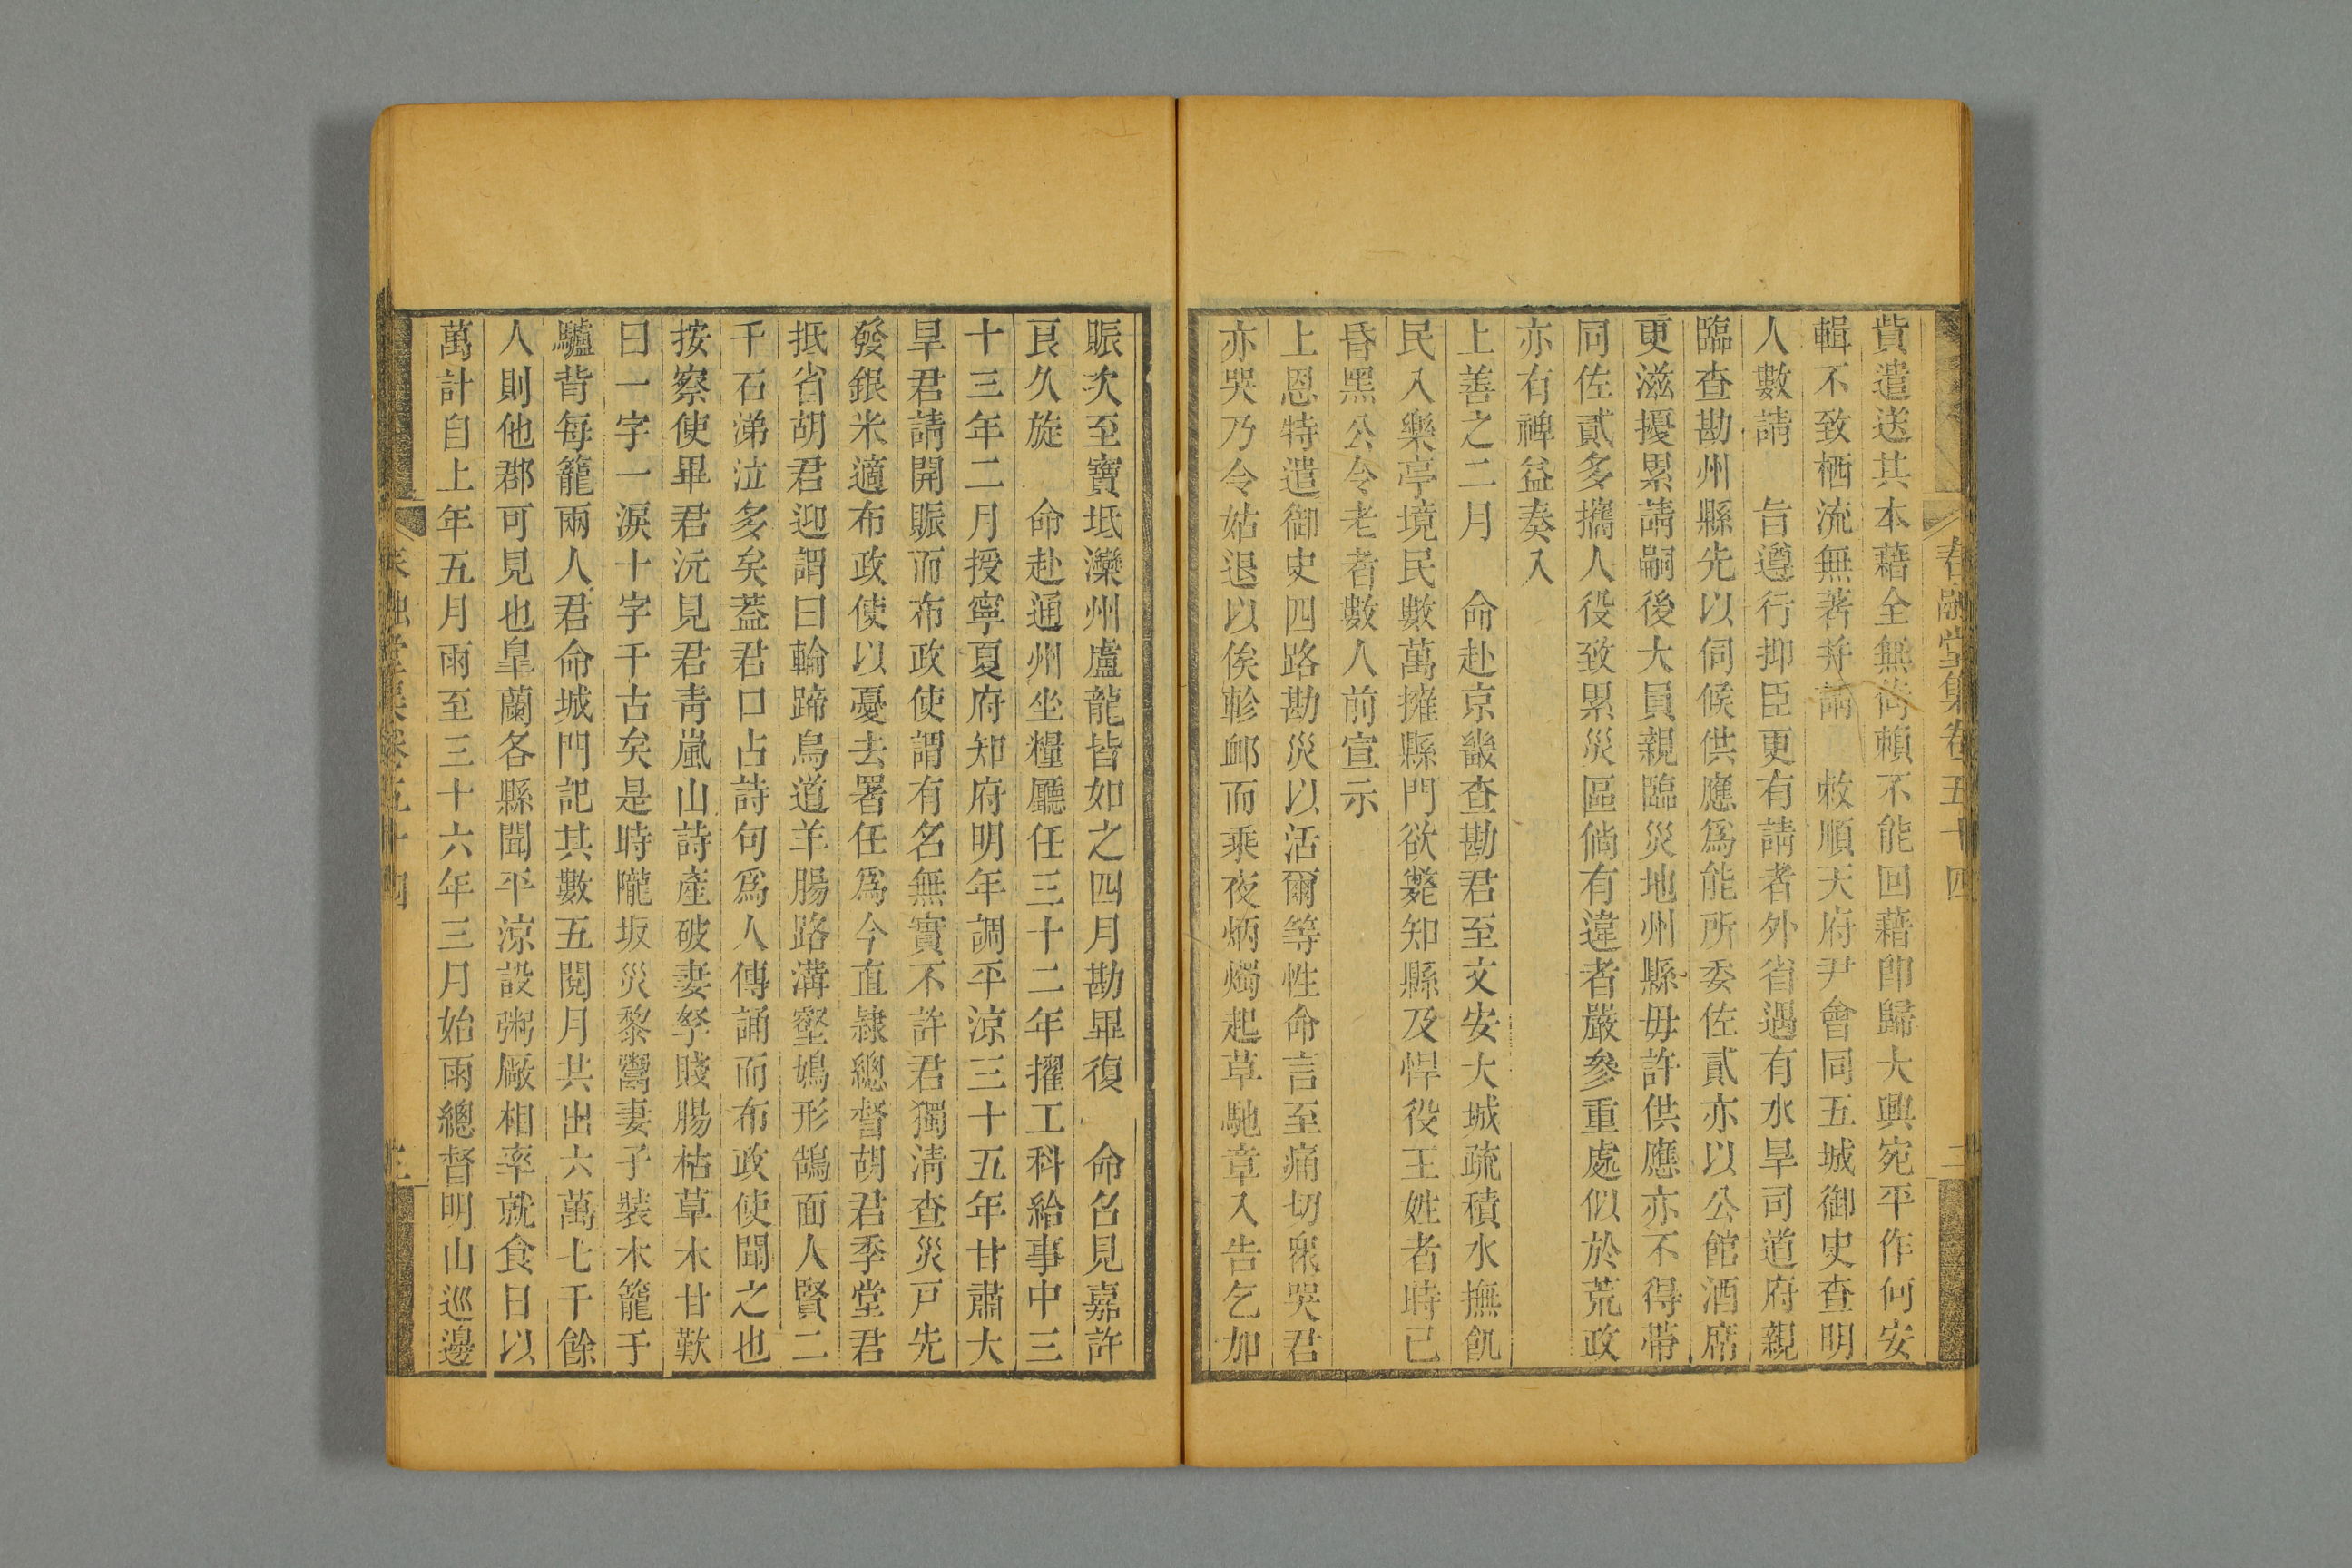 春融堂集卷五十四
二
貲遣送其本藉全無倚賴不能回藉卽歸大興宛平作何安
輯不致栖流無著并請　敕順天府尹會同五城御史查明
人數請　旨遵行抑臣更有請者外省遇有水旱司道府親
臨查勘州縣先以伺候供應爲能所委佐貳亦以公館酒席
更滋擾累請嗣後大員親臨災地州縣毋許供應亦不得帶
同佐貳多攜人役致累災區倘有違者嚴參重處似於荒政
亦有裨益奏入
上善之二月　命赴京畿查勘君至文安大城疏積水撫飢
民入樂亭境民數萬擁縣門欲斃知縣及悍役王姓者時已
昏黑公令老者數人前宣示
上恩特遣御史四路勘災以活爾等性命言至痛切衆哭君
亦哭乃令姑退以俟軫卹而乘夜炳燭起草馳章入告乞加
賑次至寶坻灤州盧龍皆如之四月勘畢復　命召見嘉許
良久旋　命赴通州坐糧廳任三十二年擢工科給事中三
十三年二月授寧夏府知府明年調平涼三十五年甘肅大
旱君請開賑而布政使謂有名無實不許君獨淸查災戸先
發銀米適布政使以憂去署任爲今直隸總督胡君季堂君
抵省胡君迎謂曰輪蹄鳥道羊腸路溝壑鳩形鵠面人賢二
千石涕泣多矣葢君口占詩句爲人傳誦而布政使聞之也
按察使畢君沅見君靑嵐山詩產破妻孥賤腸枯草木甘歎
曰一字一淚十字千古矣是時隴坂災黎鬻妻子裝木籠于
驢背每籠兩人君命城門記其數五閱月共出六萬七千餘
人則他郡可見也皐蘭各縣聞平涼設粥厰相率就食日以
萬計自上年五月雨至三十六年三月始雨總督明山巡邊
春融堂集卷五十四
三